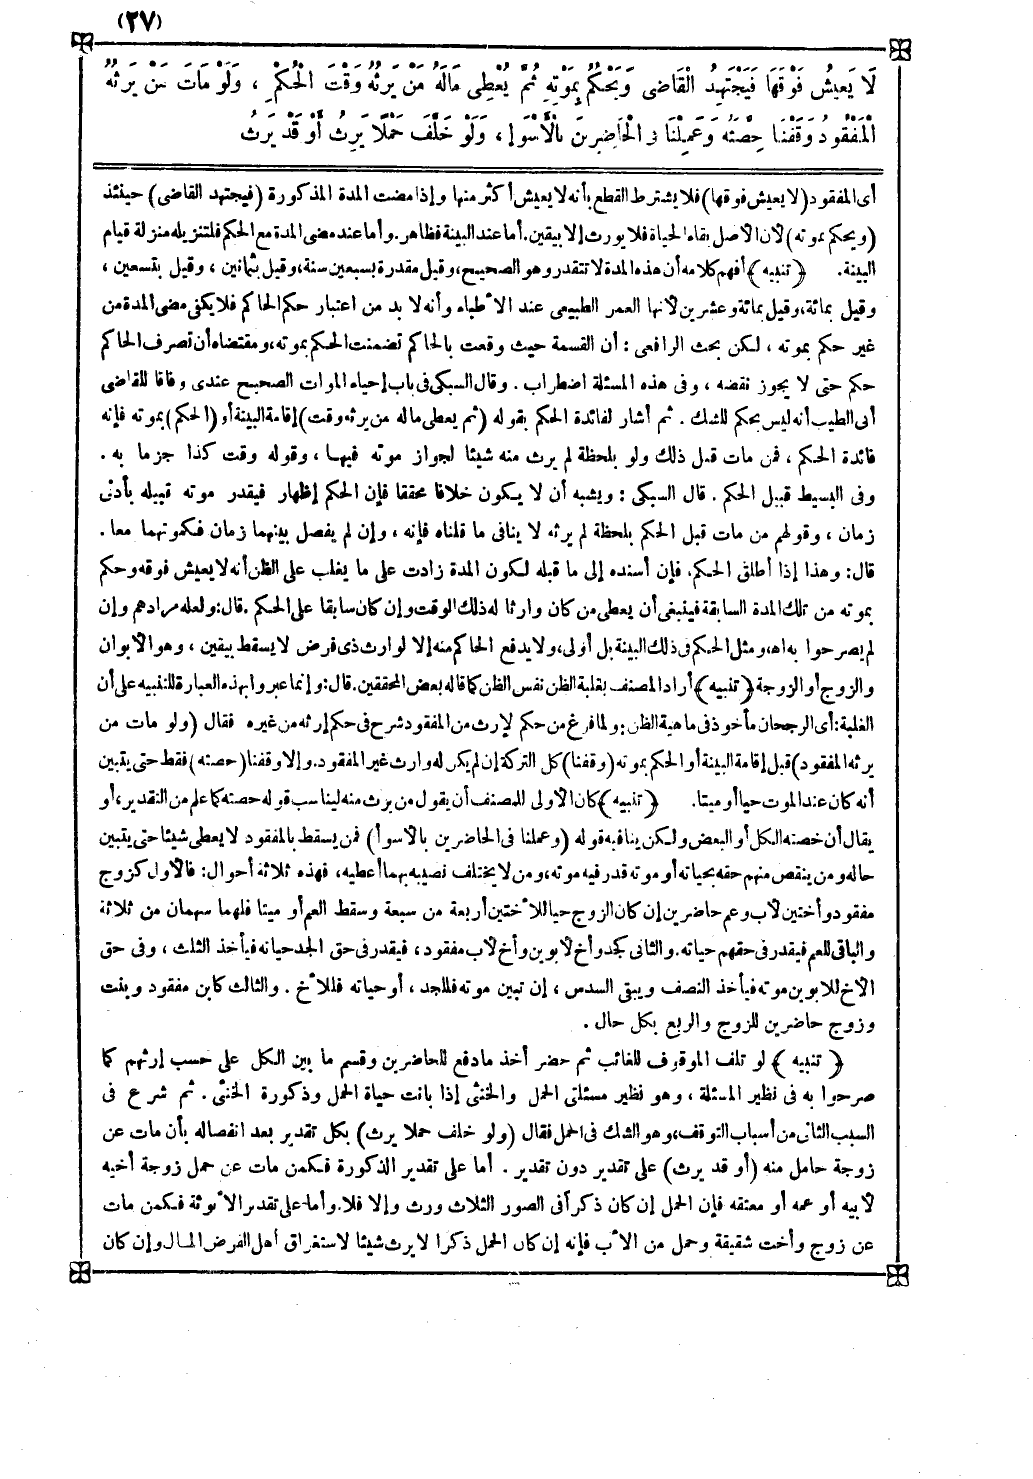 (٢٧)
لَا يَعِيشُ فَوْقَهَا فَيَجْتَهِدُ الْقَاضِى وَيَحْكُمُ بِمَوْتِهِ ثُمَّ يُعْطِى مَالَهُ مَنْ يَرِثُهُ وَقْتَ الْحُكْمِ ، وَلَوْ مَاتَ مَنْ يَرِثُهُ
الْمَفْقُودُ وَقَفْنَا حِصَّتَهُ وَعَمِلْنَا فِى الْحَاضِرِينَ بِالْأَسْوَإِ ، وَلَوْ خَلَّفَ حَمْلًا يَرِثُ أَوْ قَدْ يَرِثُ
أى المفقود (لا يعيش فوقها) فلا يشترط القطع بأنه لا يعيش أكثر منها وإذا مضت المدة المذكورة (فيجتهد القاضى) حينئذ
(ويحكم بموته) لأن الأصل بقاء الحياة فلا يورث إلا بيقين. أما عند البينة فظاهر. وأما عند مضى المدة مع الحكم فلتنزيله منزلة قيام
البينة. ﴿تنبيه﴾ أفهم كلامه أن هذه المدة لا تتقدر وهو الصحيح، وقيل مقدرة بسبعين سنة، وقيل بثمانين ، وقيل بتسعين ،
وقيل بمائة، وقيل بمائة وعشرين لأنها العمر الطبيعى عند الأطباء وأنه لا بد من اعتبار حكم الحاكم فلا يكفى مضى المدة من
غير حكم بموته ، لكن بحث الرافعى : أن القسمة حيث وقعت بالحاكم تضمنت الحكم بموته، ومقتضاه أن تصرف الحاكم
حكم حتى لا يجوز نقضه ، وفى هذه المسئلة اضطراب . وقال السبكى فى باب إحياء الموات الصحيح عندى وفاقا للقاضى
أبى الطيب أنه ليس بحكم للشك . ثم أشار لفائدة الحكم بقوله (ثم يعطى ماله من يرثه وقت) إقامة البينة أو (الحكم) بموته فإنه
فائدة الحكم ، فمن مات قبل ذلك ولو بلحظة لم يرث منه شيئا لجواز موته فيها ، وقوله وقت كذا جزما به .
وفى البسيط قبيل الحكم . قال السبكى : ويشبه أن لا يكون خلافا محققا فإن الحكم إظهار فيقدر موته قبيله بأدنى
زمان ، وقولهم من مات قبل الحكم بلحظة لم يرثه لا ينافى ما قلناه فإنه ، وإن لم يفصل بينهما زمان فكموتهما معا .
قال : وهذا إذا أطلق الحكم، فإن أسنده إلى ما قبله لكون المدة زادت على ما يغلب على الظن أنه لا يعيش فوقه وحكم
بموته من تلك المدة السابقة فينبغى أن يعطى من كان وارثا له ذلك الوقت وإن كان سابقا على الحكم . قال: ولعله مرادهم وإن
لم يصرحوا به اه، ومثل الحكم فى ذلك البينة بل أولى، ولا يدفع الحاكم منه إلا لوارث ذى فرض لا يسقط بيقين ، وهو الأبوان
والزوج أو الزوجة ﴿تنبيه﴾ أراد المصنف بغلبة الظن نفس الظن كما قاله بعض المحققين. قال: وإنما عبروا بهذه العبارة للتنبيه على أن
الغلبة: أى الرجحان مأخوذ فى ماهية الظن: ولما فرغ من حكم لإرث من المفقود شرح فى حكم إرثه من غيره فقال (ولو مات من
يرثه المفقود) قبل إقامة البينة أو الحكم بموته (وقفنا) كل التركة إن لم يكن له وارث غير المفقود. وإلا وقفنا (حصته) فقط حتى يتبين
أنه كان عند الموت حيا أو ميتا. ﴿تنبيه﴾ كان الأولى للمصنف أن يقول من يرث منه ليناسب قوله حصته كما علم من التقدير، أو
يقال أن حصته الكل أو البعض ولكن ينافيه قوله (وعملنا فى الحاضرين بالأسوأ) فمن يسقط بالمفقود لا يعطى شيئا حتى يتبين
حاله ومن ينقص منهم حقه بحياته أو موته قدر فيه موته، ومن لا يختلف نصيبه بهما أعطيه، فهذه ثلاثة أحوال: فالأول كزوج
مفقود وأختين لأب وعم حاضرين إن كان الزوج حيا للأختين أربعة من سبعة وسقط العم أو ميتا فلهما سهمان من ثلاثة
والباقى للعم فيقدر فى حقهم حياته. والثانى كجد وأخ لأبوين وأخ لأب مفقود، فيقدر فى حق الجد حياته فيأخذ الثلث ، وفى حق
الأخ للأبوين موته فيأخذ النصف ويبقى السدس ، إن تبين موته فللجد ، أو حياته فللأخ . والثالث كابن مفقود وبنت
وزوج حاضرين للزوج والربع بكل حال .
﴿تنبيه﴾ لو تلف الموقوف للغائب ثم حضر أخذ ما دفع للحاضرين وقسم ما بين الكل على حسب إرثهم كما
صرحوا به فى نظير المسئلة ، وهو نظير مسئلتى الحمل والخنثى إذا بانت حياة الحمل وذكورة الخنثى . ثم شرع فى
السبب الثانى من أسباب التوقف، وهو الشك فى الحمل فقال (ولو خلف حملا يرث) بكل تقدير بعد انفصاله بأن مات عن
زوجة حامل منه (أو قد يرث) على تقدير دون تقدير . أما على تقدير الذكورة فكمن مات عن حمل زوجة أخيه
لأبيه أو عمه أو معتقه فإن الحمل إن كان ذكرا فى الصور الثلاث ورث وإلا فلا. وأما على تقدير الأنوثة فكمن مات
عن زوج وأخت شقيقة وحمل من الأب فإنه إن كان الحمل ذكرا لا يرث شيئا لاستغراق أهل الفرض المال وإن كان